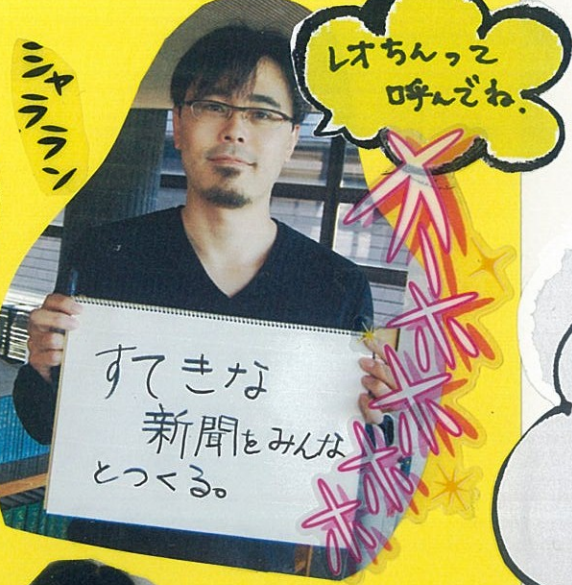 シャラララン
レオちんって
呼んでね。
すてきな
新聞をみんな
とつくる。